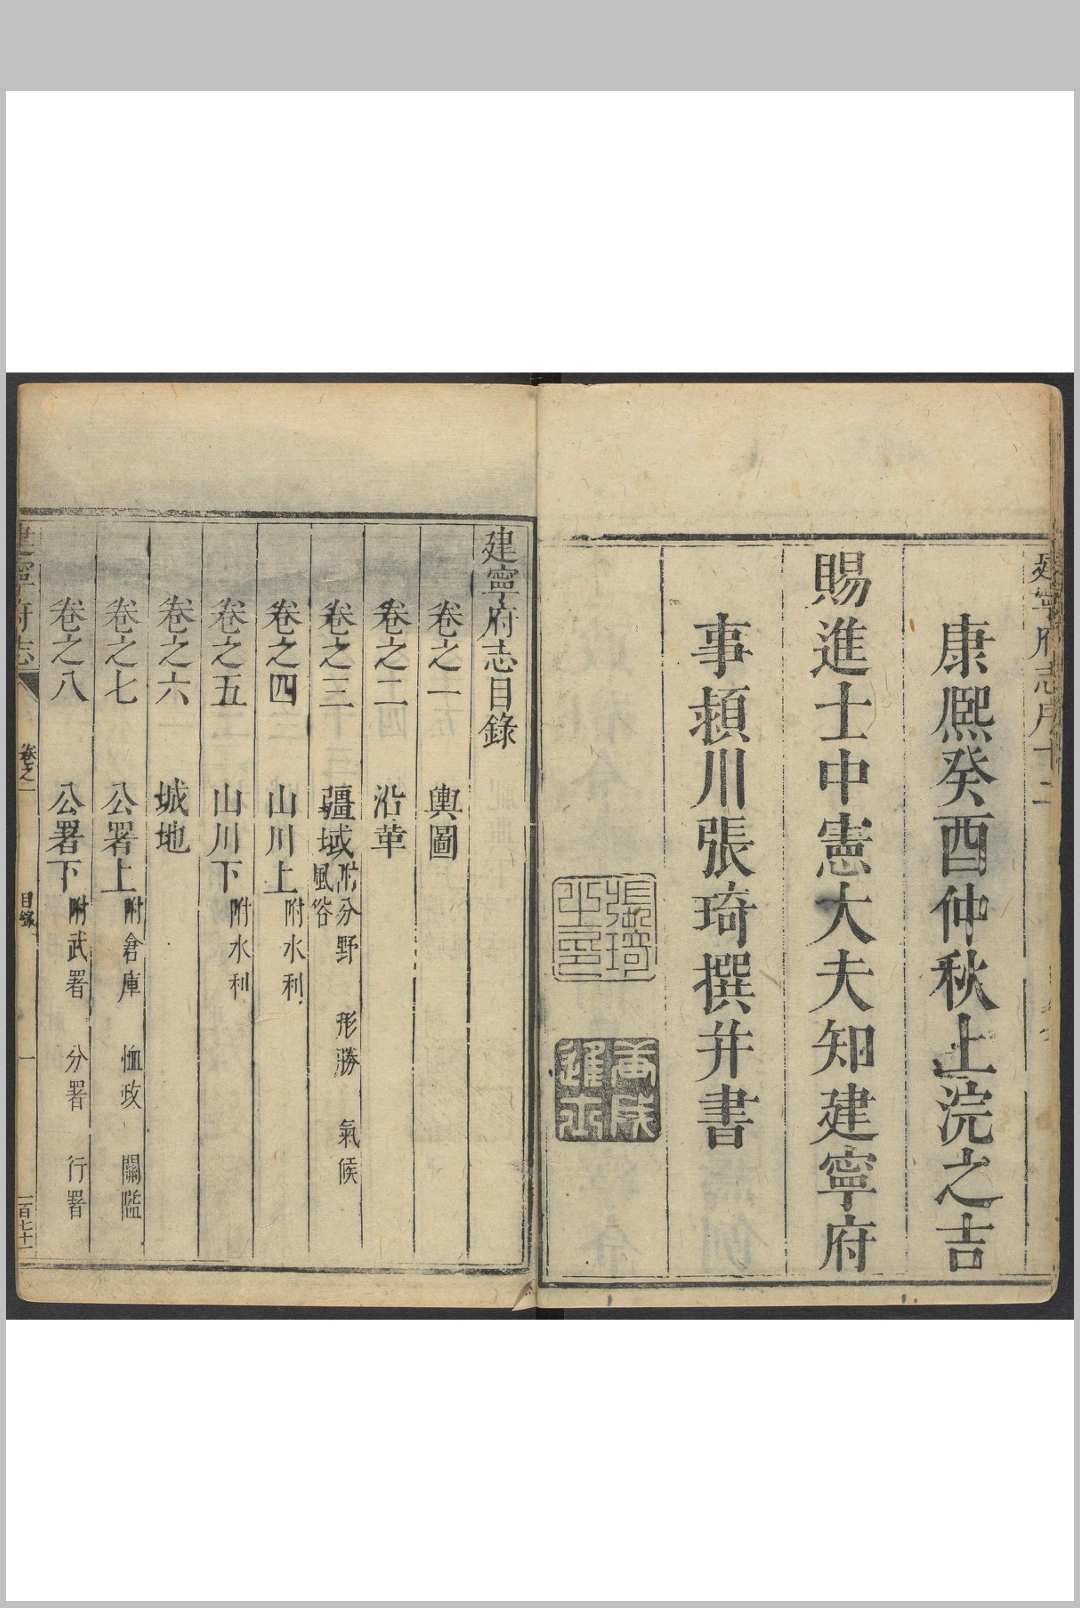 建寧府志序 十二
康熙癸酉仲秋上浣之吉
賜進士中憲大夫知建寧府
事潁川張琦撰并書
張琦之印
建寧府志目錄
卷之一 輿圖
卷之二 沿革
卷之三 疆域 附分野 形勝 氣候 風俗
卷之四 山川上 附水利
卷之五 山川下 附水利
卷之六 城池
卷之七 公署上 附倉庫 恤政 關隘
卷之八 公署下 附武署 分署 行署
建寧府志 卷之一 目錄 一 一百七十一